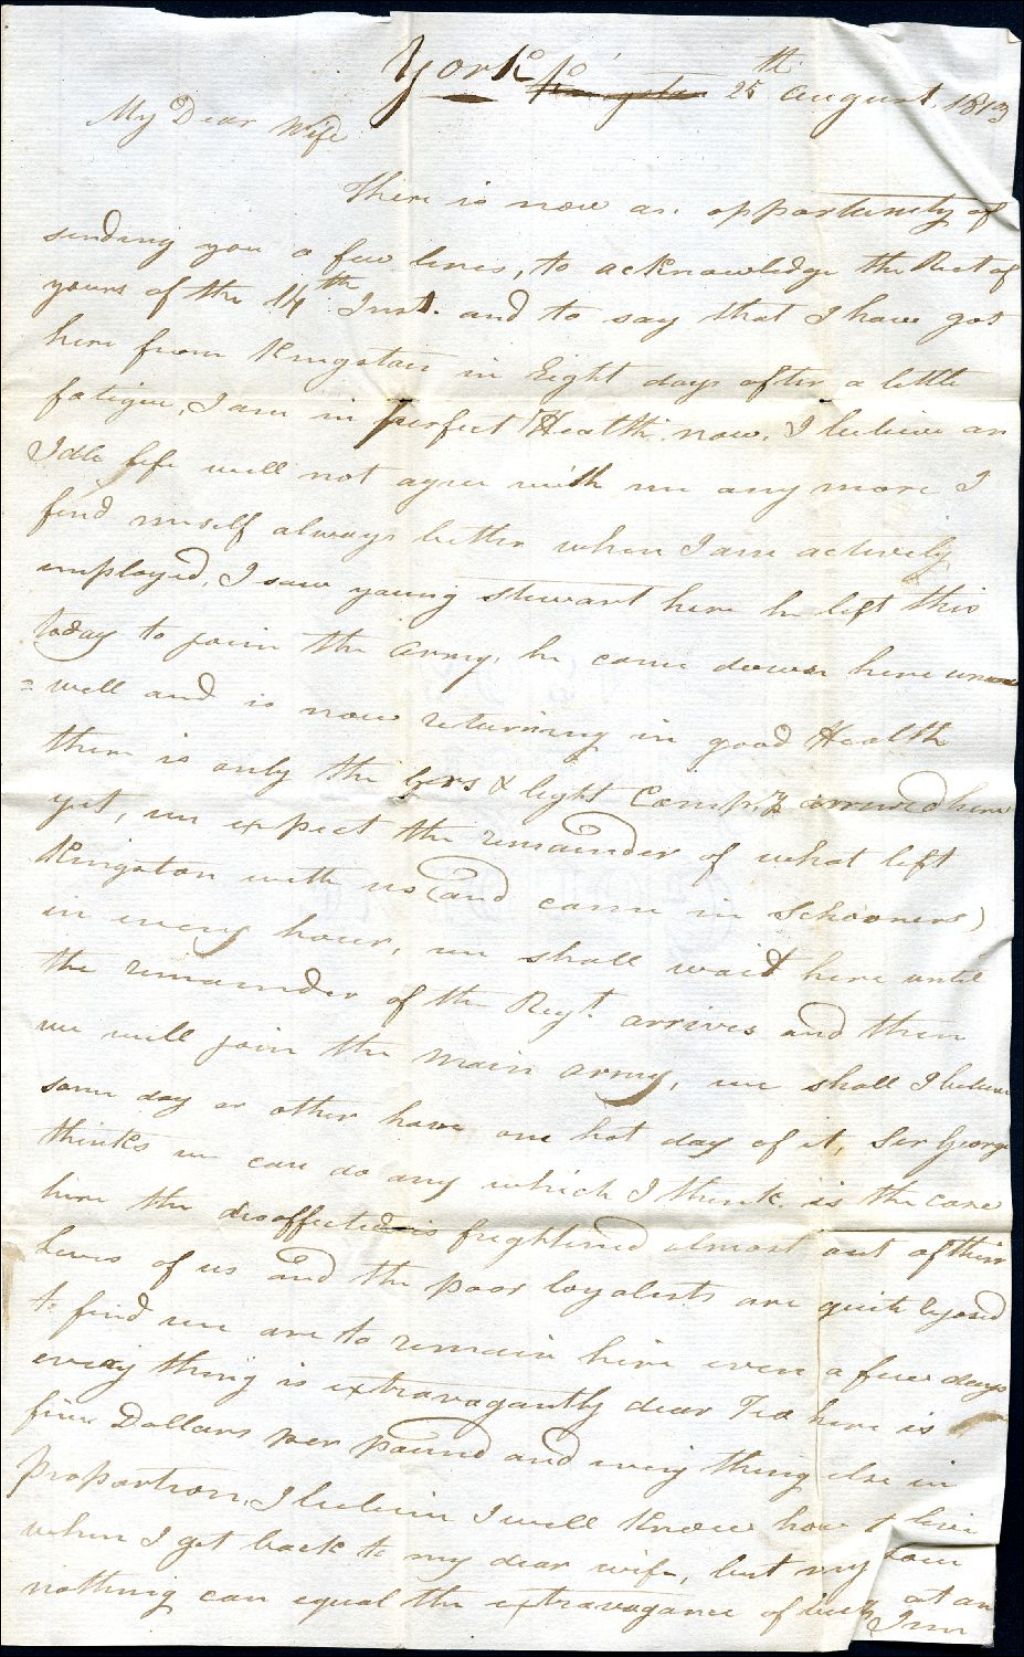 York Kingston 25th August. 1813
My Dear Wife
There is now an opportunity of
sending you a few lines, to acknowledge the Rect of
yours of the 14th Inst. and to say that I have got
here from Kingston in Eight days after a little
fatigue, I am in perfect Health now. I believe an
Idle life will not agree with me any more I
find myself always better when I am actively
employed, I saw young Stewart here he left this
today to join the Army, he came down here un
=well and is now returning in good Health
there is only the Grs & light Compy. arrived here
yet, we expect the remainder of what left
Kingston with us (and came in Schooners)
in every hour, we shall wait here until
the remainder of the Regt. arrives and then
we will join the main army, we shall I believe
some day or other have one hot day of it, Sir George
thinks we can do any which I think is the case
here the disaffected is frightened almost out of their
lives of us and the poor loyalists are quite
to find we are to remain here even a few days
every thing is extravagantly dear Tea here is
five Dollars per pound and every thing else in
proportion, I believe I will know how t live
when I get back to my dear wife, but my
nothing can equal the extravagance of at an
Inn